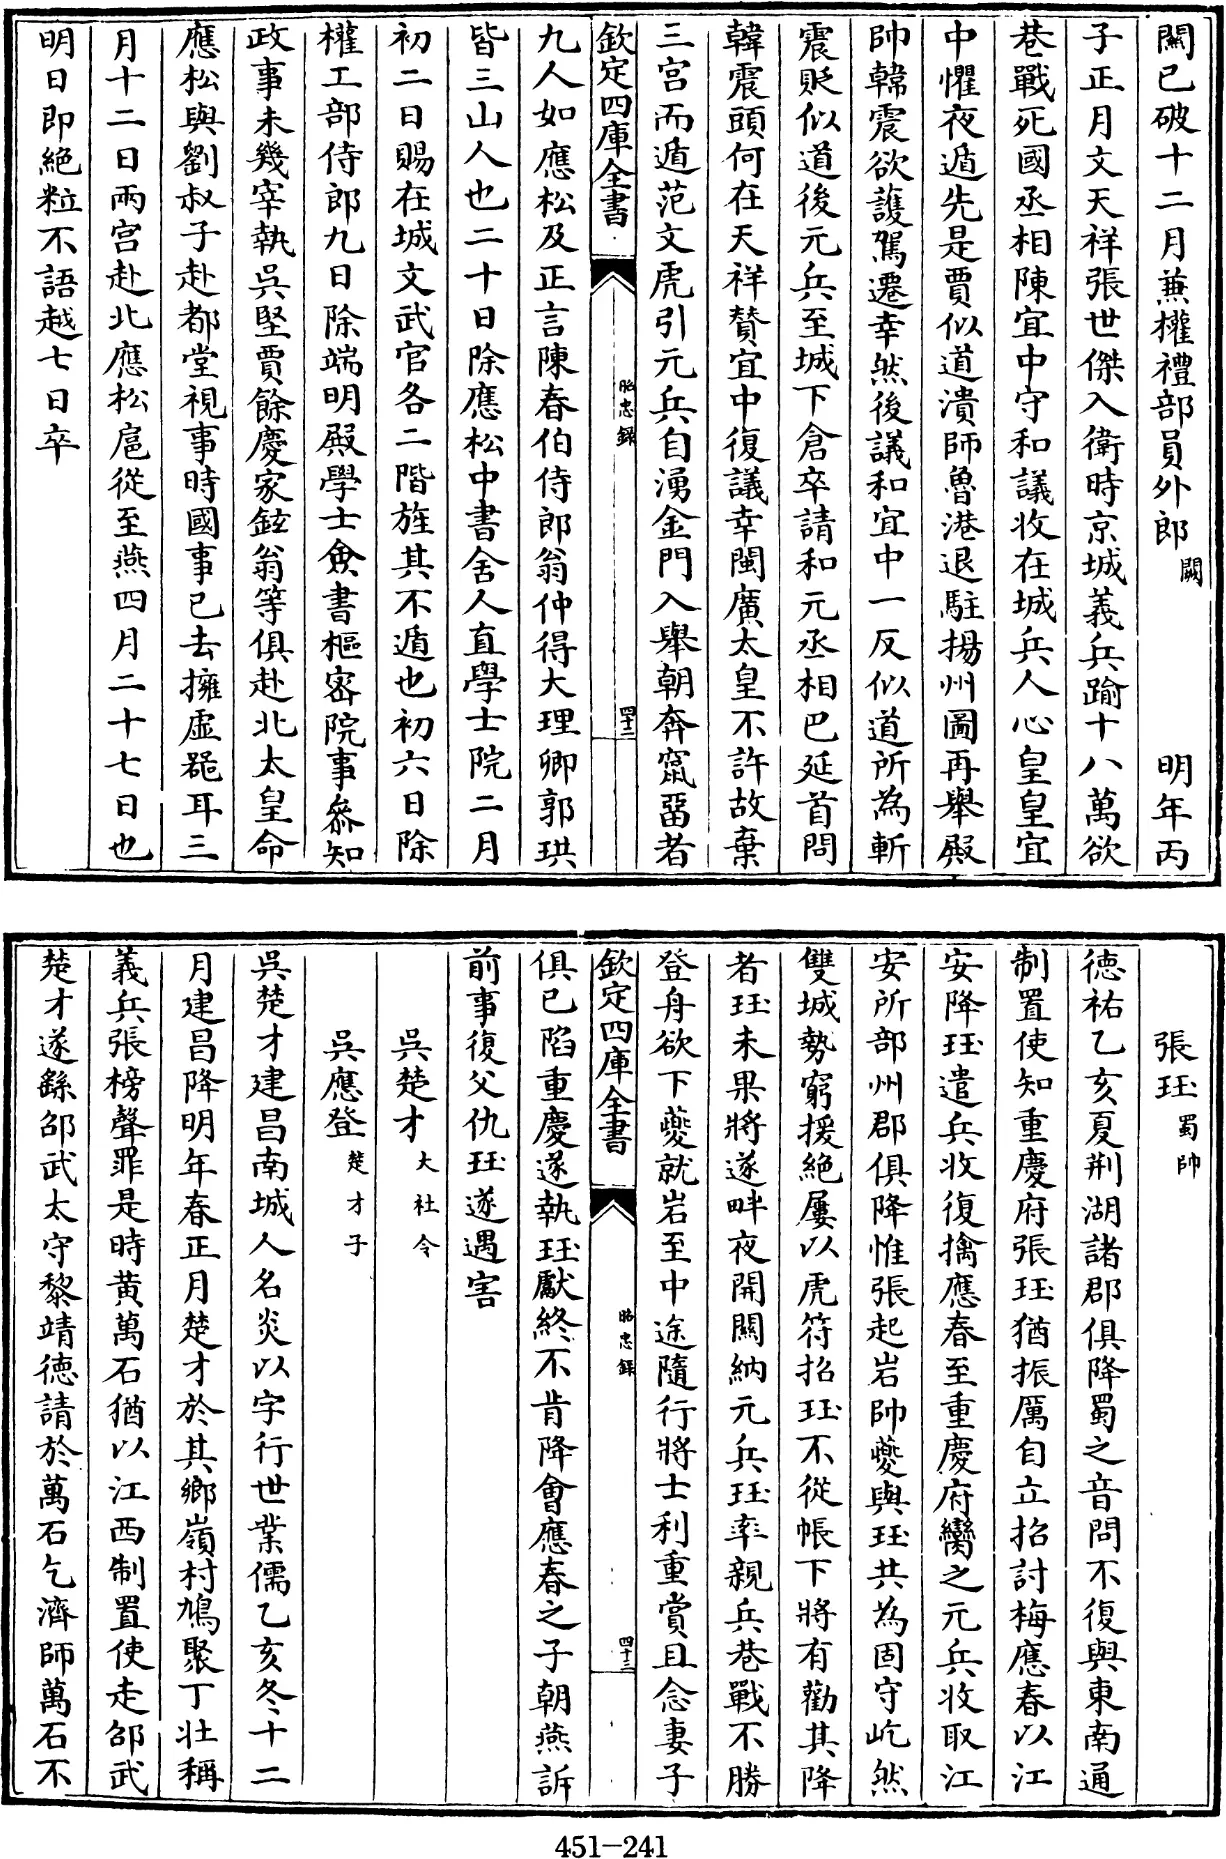 闗已破十二月兼權禮部員外郎闕明年丙
子正月文天祥張世傑入衛時京城義兵踰十八萬欲
巷戰死國丞相陳宜中守和議收在城兵人心皇皇宜
中懼夜遁先是賈似道潰師魯港退駐揚州圖再舉殿
帥韓震欲護駕遷幸然後議和宜中一反似道所為斬
震貶似道後元兵至城下倉卒請和元丞相巴延首問
韓震頭何在天祥贊宜中復議幸閩廣太皇不許故棄
三宫而遁范文虎引元兵自湧金門入舉朝奔竄畱者
欽定四庫全書
昭忠錄
四十二
九人如應松及正言陳春伯侍郎翁仲得大理卿郭珙
皆三山人也二十日除應松中書舍人直學士院二月
初二日賜在城文武官各二階旌其不遁也初六日除
權工部侍郎九日除端明殿學士僉書樞密院事叅知
政事未幾宰執吳堅賈餘慶家鉉翁等俱赴北太皇命
應松與劉叔子赴都堂視事時國事已去擁虛器耳三
月十二日兩宫赴北應松扈從至燕四月二十七日也
明日即絶粒不語越七日卒
張珏蜀帥
德祐乙亥夏荆湖諸郡俱降蜀之音問不復與東南通
制置使知重慶府張珏猶振厲自立招討梅應春以江
安降珏遣兵收復擒應春至重慶府臠之元兵收取江
安所部州郡俱降惟張起岩帥夔與珏共為固守屹然
雙城勢窮援絶屢以虎符招珏不從帳下將有勸其降
者珏未果將遂畔夜開闗納元兵珏率親兵巷戰不勝
登舟欲下夔就岩至中途隨行將士利重賞且念妻子
欽定四庫全書
昭忠錄
四十三
俱已陷重慶遂執珏獻終不肯降會應春之子朝燕訴
前事復父仇珏遂遇害
吳楚才大社令
吳應登楚才子
吳楚才建昌南城人名炎以字行世業儒乙亥冬十二
月建昌降明年春正月楚才於其鄉嶺村鳩聚丁壯稱
義兵張榜聲罪是時黄萬石猶以江西制置使走邵武
楚才遂繇邵武太守黎靖德請於萬石乞濟師萬石不
451-241